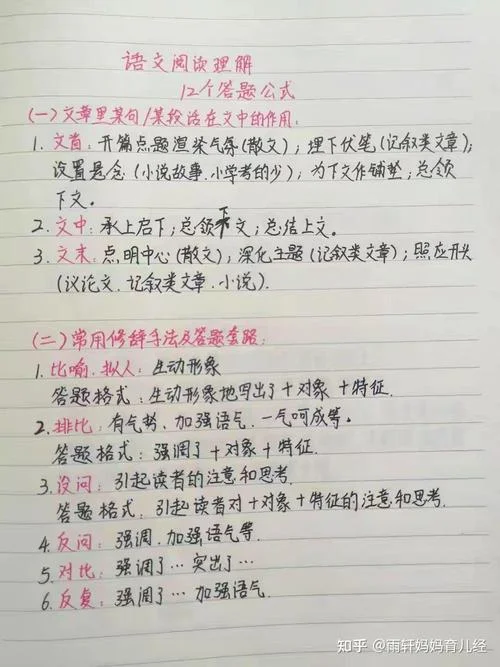 语文阅读理解
12个答题公式
(一)文章里某句/某段话在文中的作用:
1. 文首: 开篇点题渲染气氛(散文); 埋下伏笔(记叙类文章);
设置悬念(小说故事.小学考的少); 为下文作铺垫; 总领
下文。
2. 文中: 承上启下; 总领下文; 总结上文。
3. 文末: 点明中心(散文); 深化主题(记叙类文章); 照应开头
(议论文.记叙类文章.小说).
(二)常用修辞手法及答题套路:
1. 比喻.拟人: 生动形象
答题格式: 生动形象地写出了+对象+特征.
2. 排比: 有气势、加强语气、一气呵成等。
答题格式: 强调了+对象+特征.
3. 设问: 引起读者的注意和思考.
答题格式: 引起读者对+对象+特征的注意和思考.
4. 反问: 强调.加强语气等.
5. 对比: 强调了…突出了….
6. 反复: 强调了… 加强语气.
知乎 @雨轩妈妈育儿经